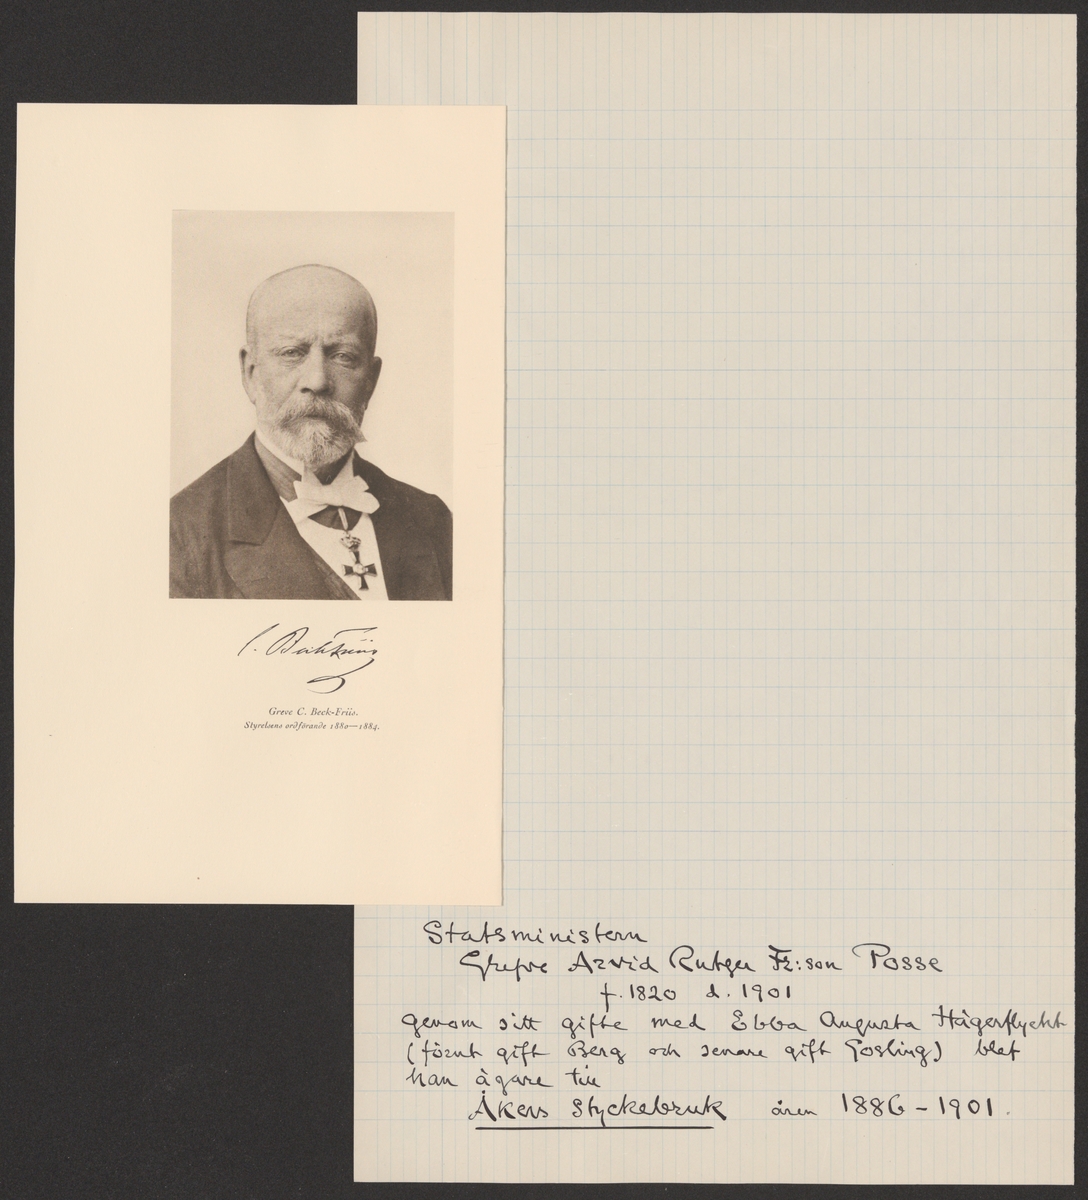 C. Beck-Friis
Greve C. Beck-Friis.
Styrelsens ordförande 1880—1884.
Statsministern
Grefve Arvid Rutger Fr:son Posse
f. 1820 d. 1901
genom sitt gifte med Ebba Augusta Hägerflycht
(förut gift Berg och senare gift Gosling) blef
han ägare till
Åkers Styckebruk åren 1886-1901.